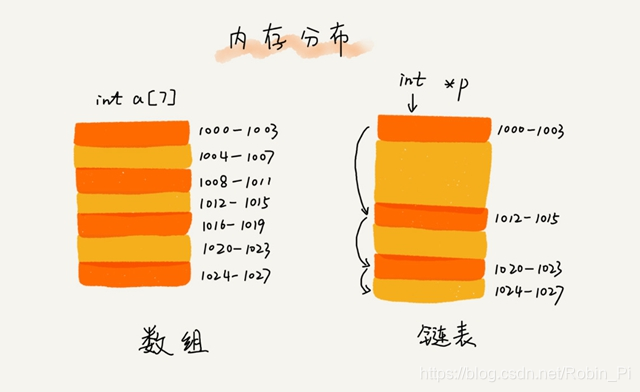 内存分布
int a[7]
1000-1003
1004-1007
1008-1011
1012-1015
1016-1019
1020-1023
1024-1027
数组
int *p
1000-1003
1012-1015
1020-1023
1024-1027
链表
https://blog.csdn.net/Robin_Pi